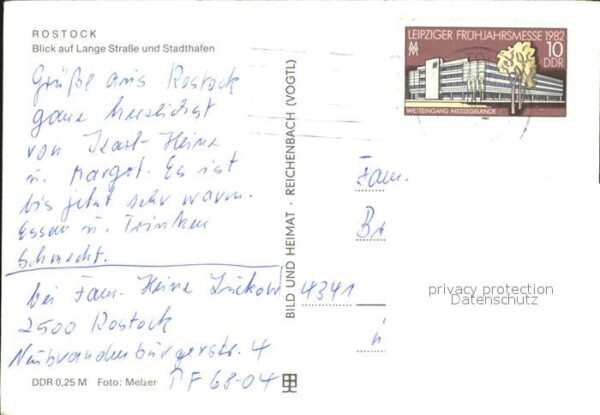 ROSTOCK
Blick auf Lange Straße und Stadthafen
Grüße aus Rostock
ganz herzlichst
von Karl-Heinz
u. Margot. Es ist
bis jetzt sehr warm.
Essen u. Trinken
schmeckt.
bei Fam. Heinz
2500 Rostock
Neubrandenburgerstr. 4
PF 68-04
DDR 0,25 M Foto: Melzer
BILD UND HEIMAT · REICHENBACH (VOGTL)
LEIPZIGER FRÜHJAHRSMESSE 1982
10
DDR
MESSEGELÄNDE
1982
Fam.
4341
privacy protection
Datenschutz